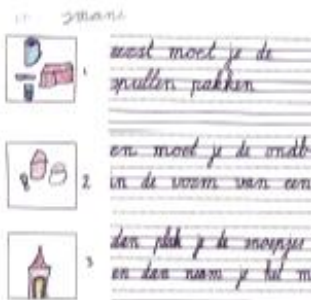 1 eerst moet je de
spullen pakken
2 en moet je de ondb
in de vorm van een
3 dan plak je de snoepjes
en dan neem je het m